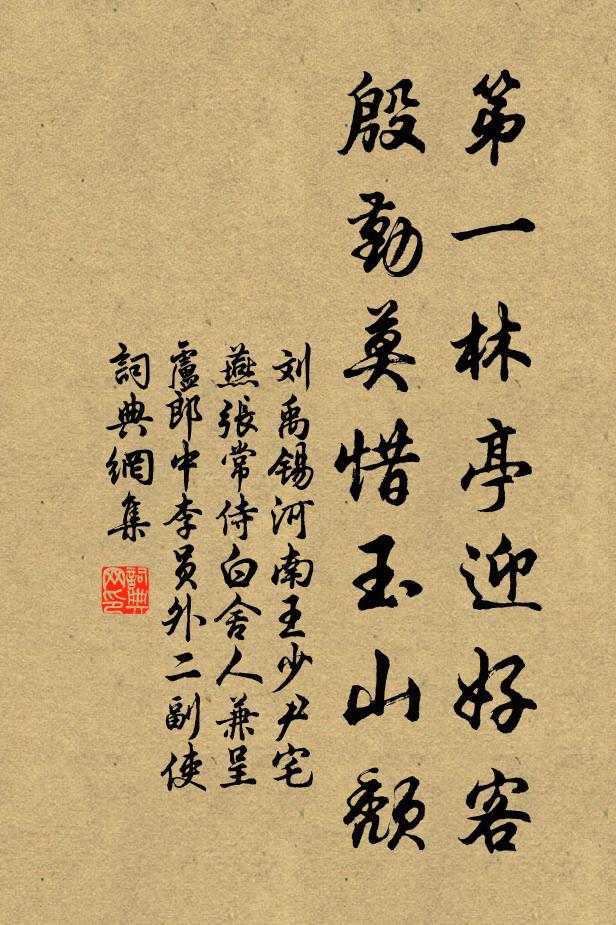 第一林亭迎好客
殷勤莫惜玉山頹
刘禹锡河南王少尹宅
燕張常侍白舍人兼呈
盧郎中李員外二副使
詞典網集
詞典
网印